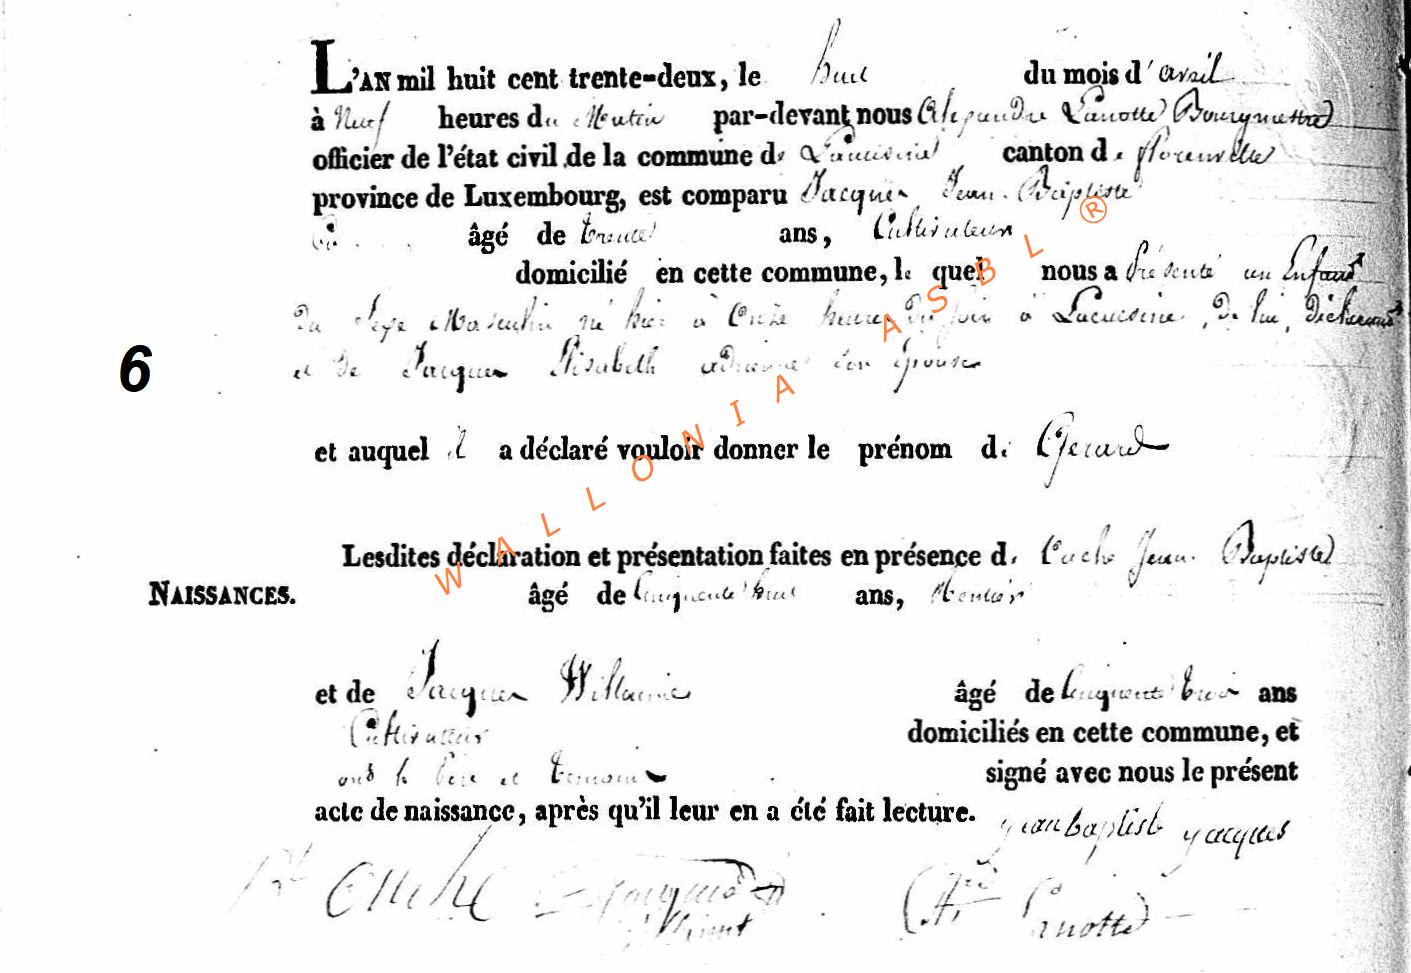 L'AN mil huit cent trente-deux, le huit du mois d'avril
à Neuf heures du Matin par-devant nous Alexandre Lanotte Bourgmestre
officier de l'état civil de la commune de Lacuisine canton de florenville
province de Luxembourg, est comparu Jacques Jean Baptiste
âgé de trente ans, Cultivateur
domicilié en cette commune, le quel nous a Présenté un Enfant
Du Sexe Masculin né hier à Onze heures Du soir à Lacuisine, De lui, déclarant
et De Jacques Elisabeth adrienne son épouse
6
et auquel il a déclaré vouloir donner le prénom de Gerard
Lesdites déclaration et présentation faites en présence de Jean Baptiste
NAISSANCES. âgé de Cinquante huit ans,
et de Jacques Willaume âgé de Cinquante trois ans
Cultivateur domiciliés en cette commune, et
ont le Père et temoins signé avec nous le présent
acte de naissance, après qu'il leur en a été fait lecture.
jean baptist jacques
Lanotte
WALLONIA ASBL ®